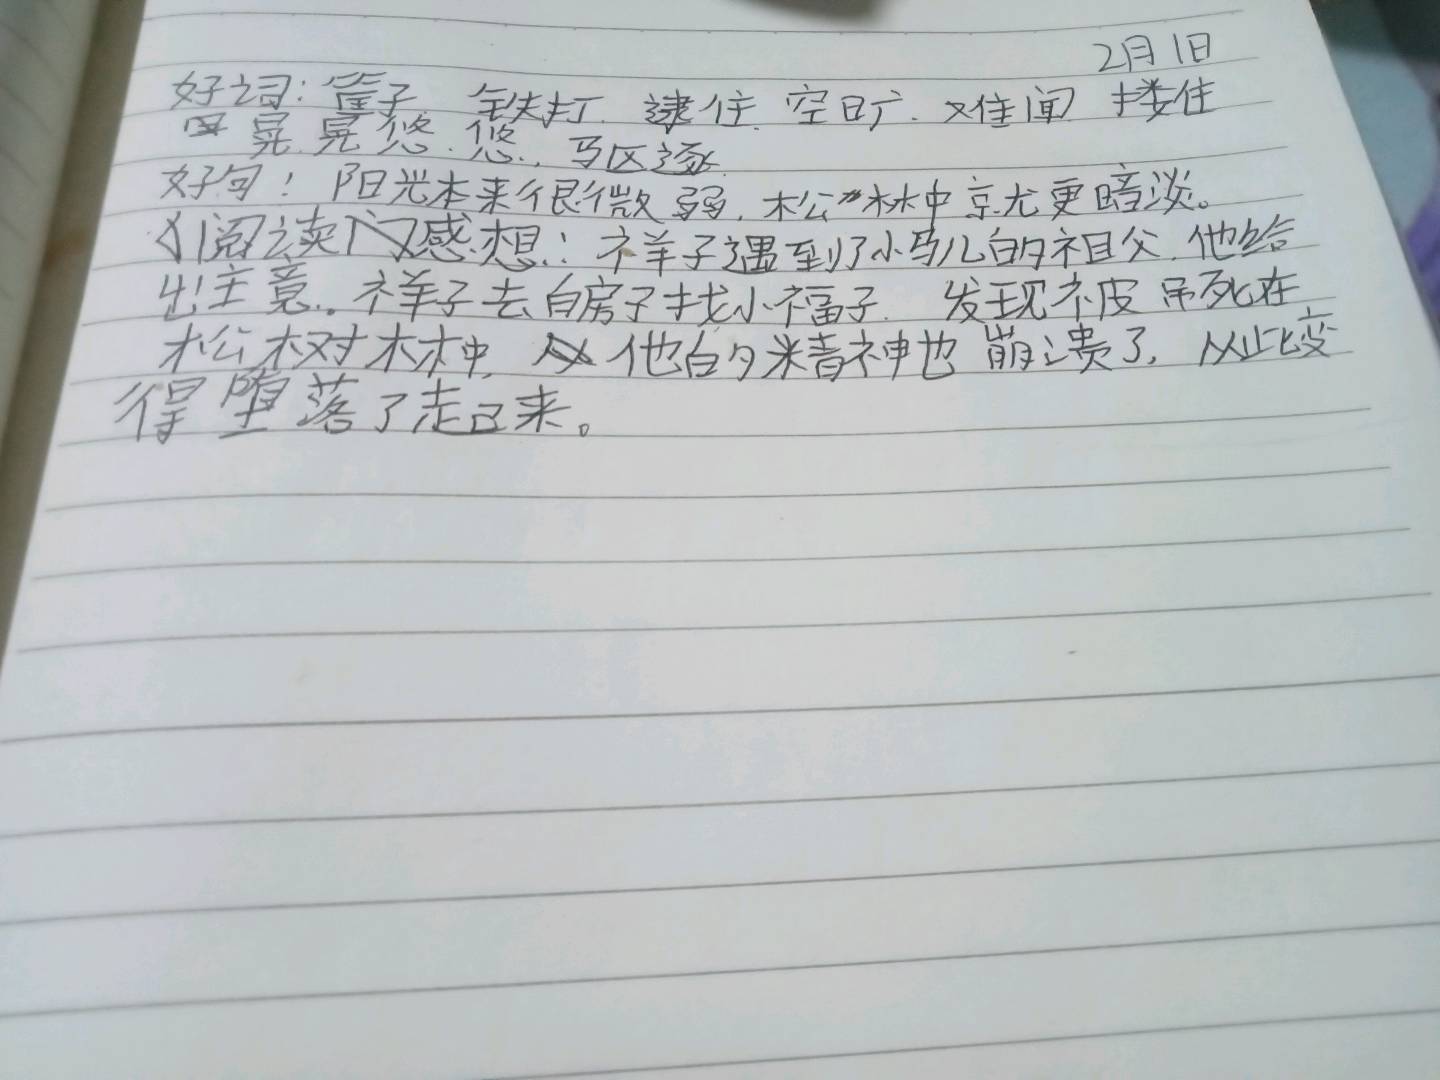 2月1日
好词：筐子、铁打、逮住、空旷、难闻 搂住
晃晃悠悠、驱逐
好句：阳光本来很微弱，松林中就更暗淡。
阅读感想：祥子遇到了小马儿的祖父，他给
出主意。祥子去白房子找小福子 发现被吊死在
松树林中，他的精神也崩溃了，从此变
得堕落了起来。